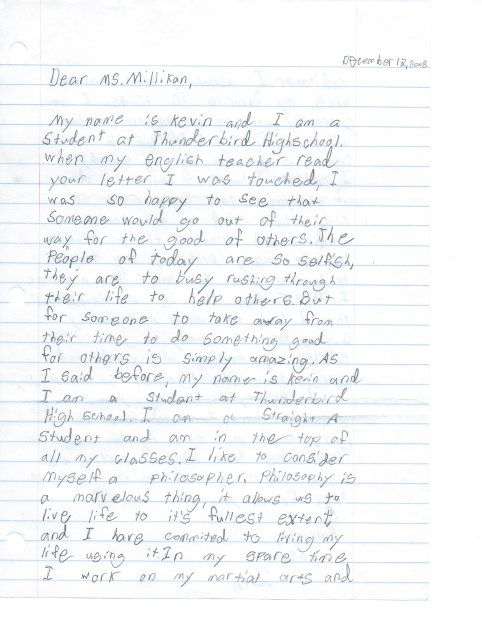 December 12, 2008
Dear Ms. Millikan,
My name is Kevin and I am a
Student at Thunderbird Highschool.
when my english teacher read
your letter I was touched, I
was so happy to see that
Someone would go out of their
way for the good of others. The
People of today are so selfish,
they are to busy rushing through
their life to help others. But
for someone to take away from
their time to do something good
for others is simply amazing. As
I said before, my name is Kevin and
I am a student at Thunderbird
High school. I am a Straight A
Student and am in the top of
all my classes. I like to consider
myself a philosopher. Philosophy is
a marvelous thing, it allows us to
live life to it's fullest extent
and I have commited to living my
life using it. In my spare time
I work on my martial arts and